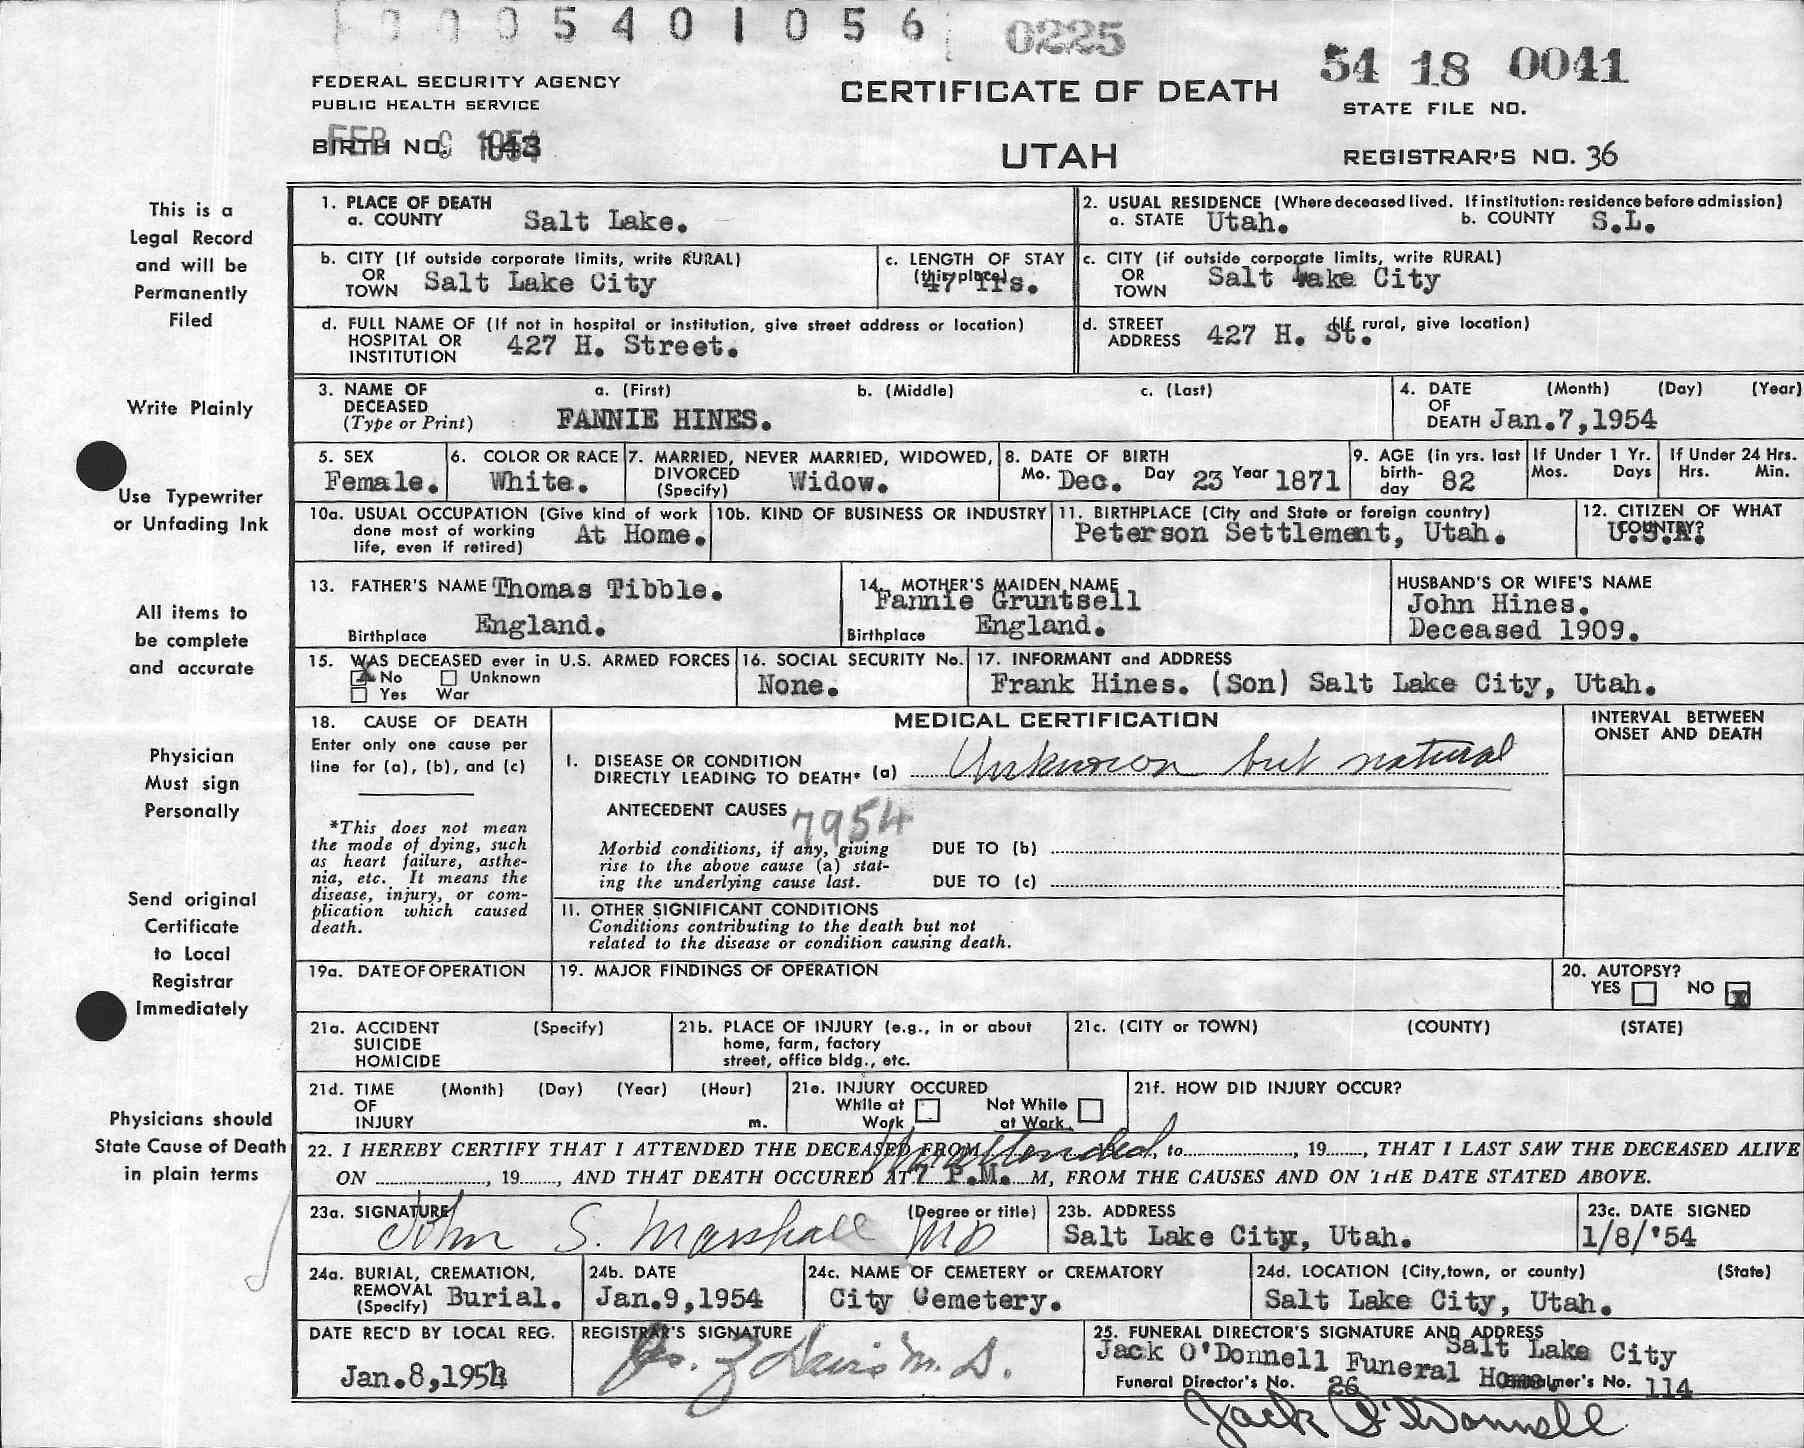 0005401056 0225
54 18 0041
FEDERAL SECURITY AGENCY
PUBLIC HEALTH SERVICE
CERTIFICATE OF DEATH
STATE FILE NO.
FEB 9 1954
BIRTH NO. 143
UTAH
REGISTRAR'S NO. 36
This is a
Legal Record
and will be
Permanently
Filed
Write Plainly
Use Typewriter
or Unfading Ink
All items to
be complete
and accurate
Physician
Must sign
Personally
Send original
Certificate
to Local
Registrar
Immediately
Physicians should
State Cause of Death
in plain terms
1. PLACE OF DEATH
a. COUNTY Salt Lake.
2. USUAL RESIDENCE (Where deceased lived. If institution: residence before admission)
a. STATE Utah. b. COUNTY S.L.
b. CITY (If outside corporate limits, write RURAL)
OR
TOWN Salt Lake City
c. LENGTH OF STAY
(this place)
47 Yrs.
c. CITY (if outside corporate limits, write RURAL)
OR
TOWN Salt Lake City
d. FULL NAME OF (If not in hospital or institution, give street address or location)
HOSPITAL OR
INSTITUTION 427 H. Street.
d. STREET (If rural, give location)
ADDRESS 427 H. St.
3. NAME OF a. (First) b. (Middle) c. (Last)
DECEASED
(Type or Print) FANNIE HINES.
4. DATE (Month) (Day) (Year)
OF
DEATH Jan.7,1954
5. SEX
Female.
6. COLOR OR RACE
White.
7. MARRIED, NEVER MARRIED, WIDOWED,
DIVORCED
(Specify) Widow.
8. DATE OF BIRTH
Mo. Dec. Day 23 Year 1871
9. AGE (in yrs. last
birth-
day 82
If Under 1 Yr.
Mos. Days
If Under 24 Hrs.
Hrs. Min.
10a. USUAL OCCUPATION (Give kind of work
done most of working
life, even if retired) At Home.
10b. KIND OF BUSINESS OR INDUSTRY
11. BIRTHPLACE (City and State or foreign country)
Peterson Settlement, Utah.
12. CITIZEN OF WHAT
COUNTRY?
U.S.A.
13. FATHER'S NAME Thomas Tibble.
Birthplace England.
14. MOTHER'S MAIDEN NAME
Fannie Gruntsell
Birthplace England.
HUSBAND'S OR WIFE'S NAME
John Hines.
Deceased 1909.
15. WAS DECEASED ever in U.S. ARMED FORCES
X No Unknown
Yes War
16. SOCIAL SECURITY No.
None.
17. INFORMANT and ADDRESS
Frank Hines. (Son) Salt Lake City, Utah.
18. CAUSE OF DEATH
Enter only one cause per
line for (a), (b), and (c)
*This does not mean
the mode of dying, such
as heart failure, asthe-
nia, etc. It means the
disease, injury, or com-
plication which caused
death.
MEDICAL CERTIFICATION
INTERVAL BETWEEN
ONSET AND DEATH
I. DISEASE OR CONDITION
DIRECTLY LEADING TO DEATH* (a) Unknown but natural
ANTECEDENT CAUSES 7954
Morbid conditions, if any, giving
rise to the above cause (a) stat-
ing the underlying cause last.
DUE TO (b)
DUE TO (c)
II. OTHER SIGNIFICANT CONDITIONS
Conditions contributing to the death but not
related to the disease or condition causing death.
19a. DATE OF OPERATION
19. MAJOR FINDINGS OF OPERATION
20. AUTOPSY?
YES NO X
21a. ACCIDENT (Specify)
SUICIDE
HOMICIDE
21b. PLACE OF INJURY (e.g., in or about
home, farm, factory
street, office bldg., etc.
21c. (CITY or TOWN) (COUNTY) (STATE)
21d. TIME (Month) (Day) (Year) (Hour)
OF
INJURY m.
21e. INJURY OCCURED
While at Work
Not While at Work
21f. HOW DID INJURY OCCUR?
22. I HEREBY CERTIFY THAT I ATTENDED THE DECEASED FROM Unattended, to , 19 , THAT I LAST SAW THE DECEASED ALIVE
ON , 19 , AND THAT DEATH OCCURED AT 7 P.M. M, FROM THE CAUSES AND ON THE DATE STATED ABOVE.
23a. SIGNATURE (Degree or title)
John S. Marshall MD
23b. ADDRESS
Salt Lake City, Utah.
23c. DATE SIGNED
1/8/'54
24a. BURIAL, CREMATION,
REMOVAL
(Specify) Burial.
24b. DATE
Jan.9,1954
24c. NAME OF CEMETERY or CREMATORY
City Cemetery.
24d. LOCATION (City, town, or county) (State)
Salt Lake City, Utah.
DATE REC'D BY LOCAL REG.
Jan.8,1954
REGISTRAR'S SIGNATURE
Davis M. D.
25. FUNERAL DIRECTOR'S SIGNATURE AND ADDRESS
Salt Lake City
Jack O'Donnell Funeral Home.
Funeral Director's No. 26 Embalmer's No. 114
Jack O'Donnell